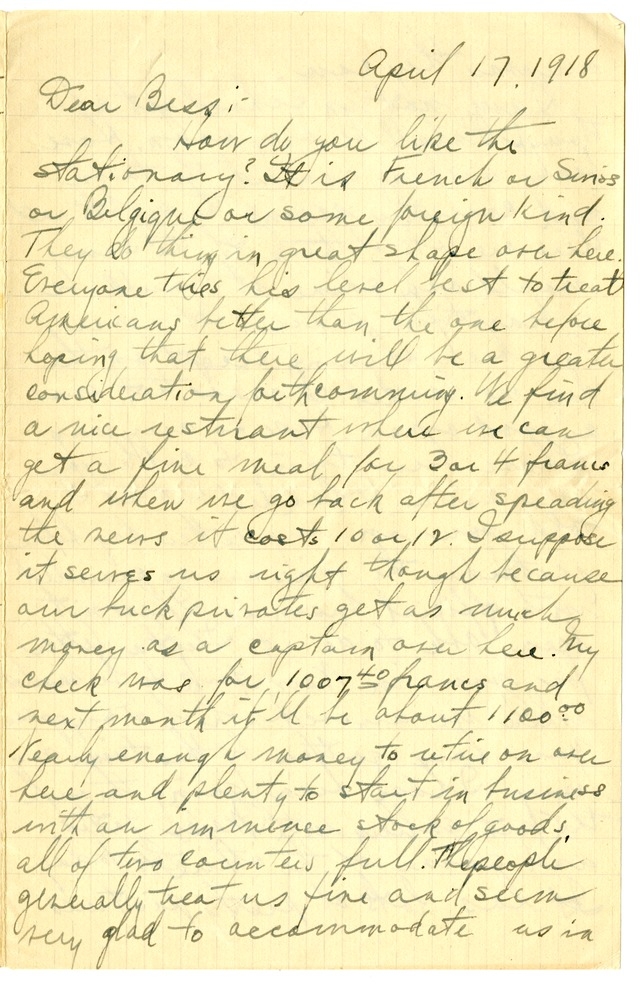 April 17, 1918
Dear Bess;-
How do you like the
stationary? It is French or Swiss
or Belgique or some foreign kind.
They do things in great shape over here.
Everyone tries his level best to treat
Americans better than the one before
hoping that there will be a greater
consideration forthcomming. We find
a nice resturant where we can
get a fine meal for 3 or 4 francs
and when we go back after spreading
the news it costs 10 or 12. I suppose
it serves us right though because
our buck privates get as much
money as a captain over here. My
check was for 1007 40 francs and
next month it'll be about 1100 00
Nearly enough money to retire on over
here and plenty to start in business
with an immence stock of goods,
all of two counters full. The people
generally treat us fine and seem
very glad to accommodate us in